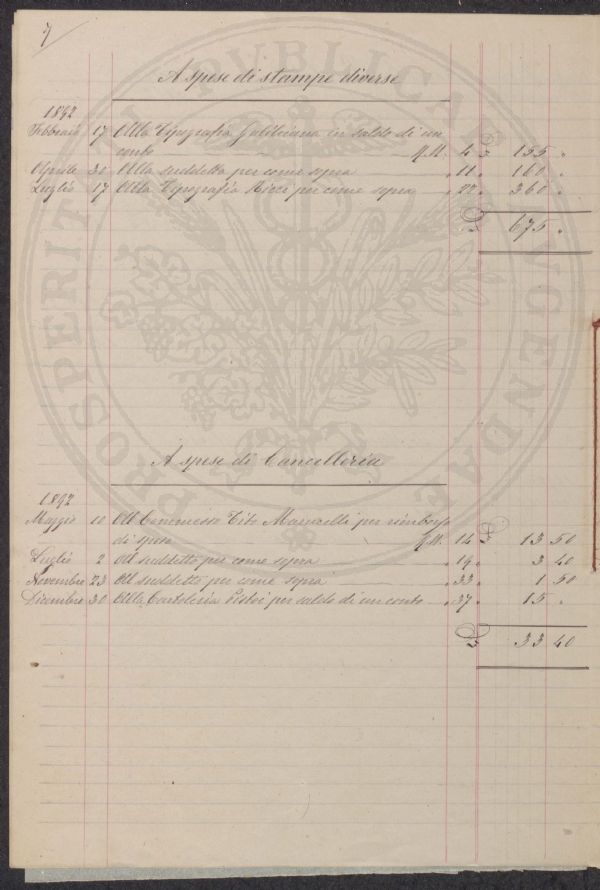 7
A spese di stampe diverse
1892
Febbraio 17 Alla Tipografia Galileiana in saldo di un
conto M.U. 4 £ 155 "
Aprile 30 Alla suddetta per come sopra " 11 " 160 "
Luglio 17 Alla Tipografia Ricci per come sopra " 22 " 360 "
£ 675 "
A spese di Cancelleria
1892
Maggio 10 Al Commesso Tito per rimborso
di spese M.U. 14 £ 13 50
Luglio 2 Al suddetto per come sopra " 19 " 3 40
Novembre 23 Al suddetto per come sopra " 33 " 1 50
Dicembre 30 Alla Cartoleria Pistoi per saldo di un conto " 37 " 15 "
£ 33 40
PROSPERITATI PUBLICAE AVGENDAE